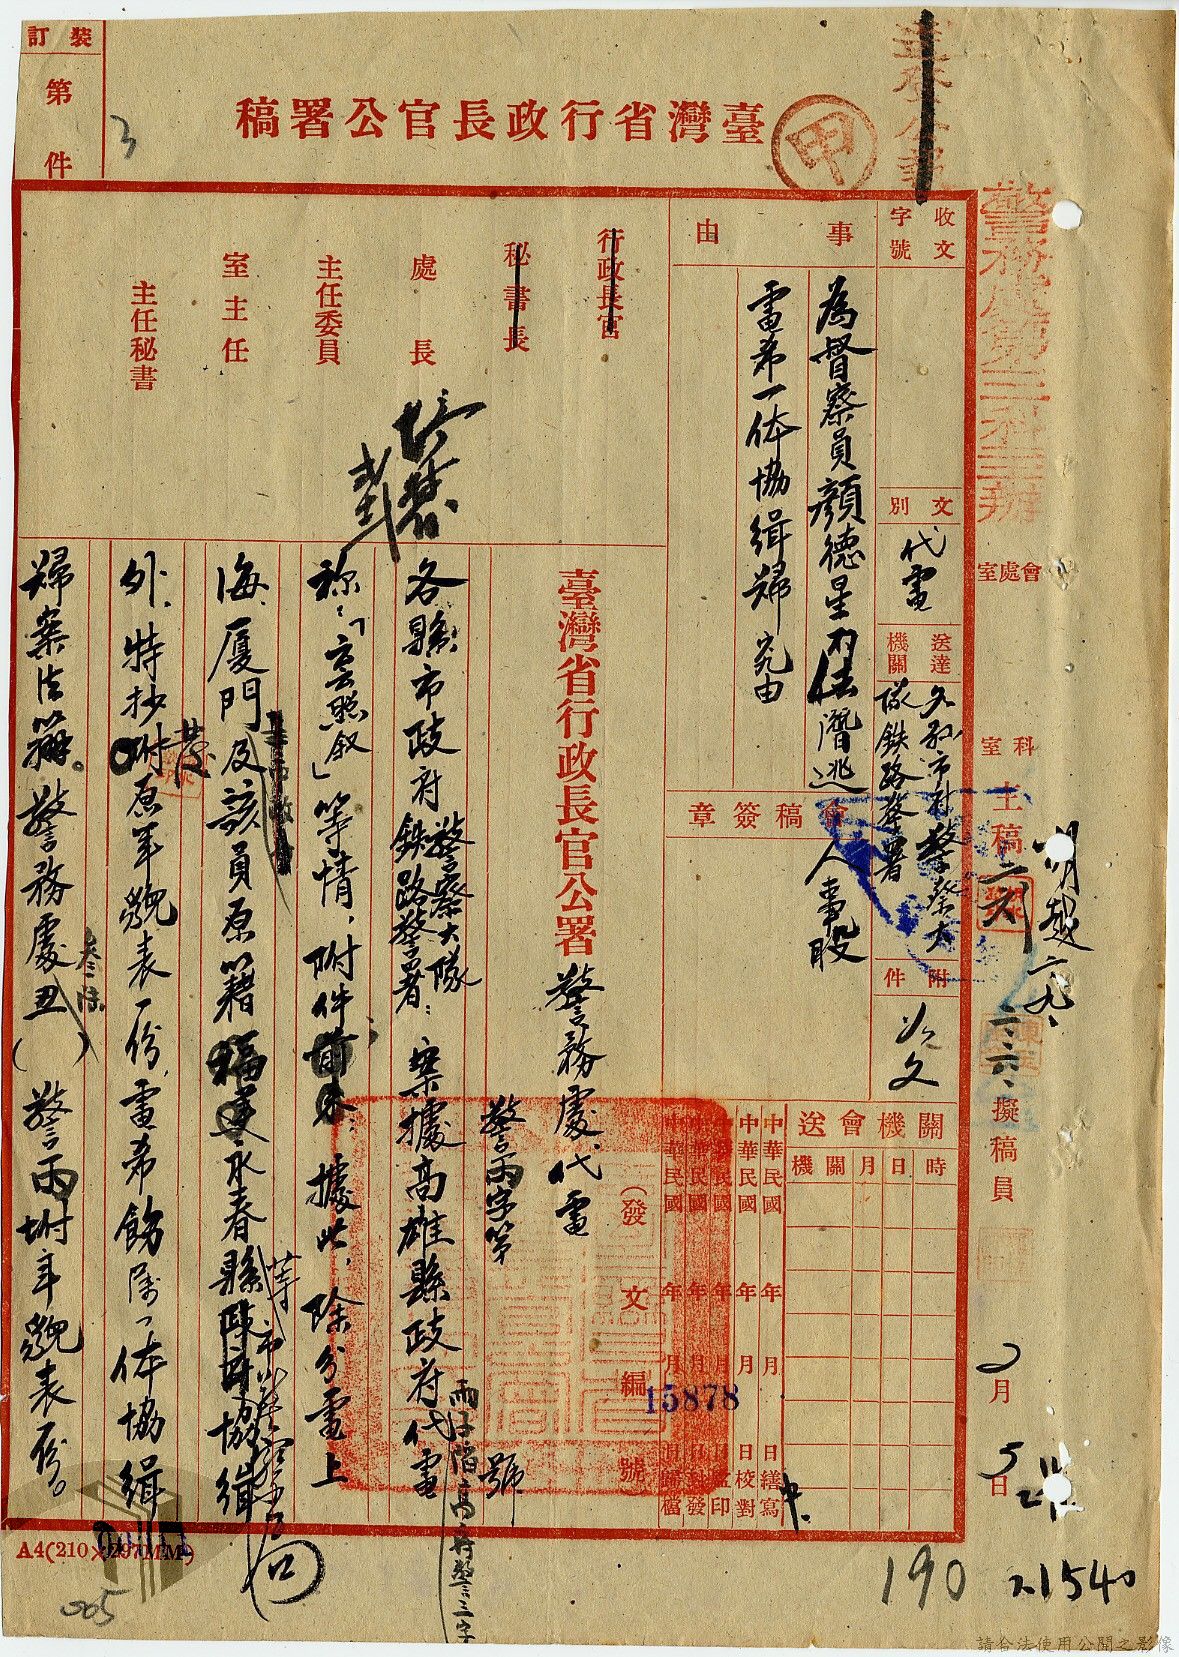 裝訂
第 件
3
臺灣省行政長官公署稿
甲
警務處第三科主辦
收文
字號
文別
代電
送達機關
各縣市政府警察大
隊鉄路警署
附件
如文
事由
為督察員顏德星不法潛逃
電希一体協緝歸究由
會稿簽章
人事股
會處室
科室
主稿
擬稿員
2月5日
關機會送
機關 月 日 時
中華民國 年 月 日繕寫
中華民國 年 月 日校對
中華民國 年 月 日蓋印
中華民國 年 月 日封發
中華民國 年 月 日歸檔
(發文編號)
15878
行政長官
秘書長
處長
主任委員
室主任
主任秘書
臺灣省行政長官公署警務處代電
警丙字第 號
各縣市政府警察大隊鉄路警署:案據高雄縣政府代電
稱:「云照叙」等情,附件前來,據此,除分電上
海、厦門及該員原籍福建永春縣政府協緝
外,特抄附原年貌表一份,電希飭屬一体協緝
歸案法辦。警務處丑( )警丙坿年貌表一份。
A4(210×297MM)
005
190
21540
請合法使用公開之影像